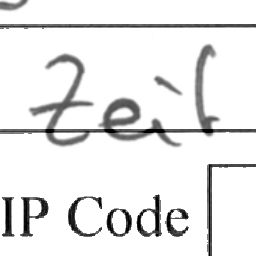 Zeil
IP Code